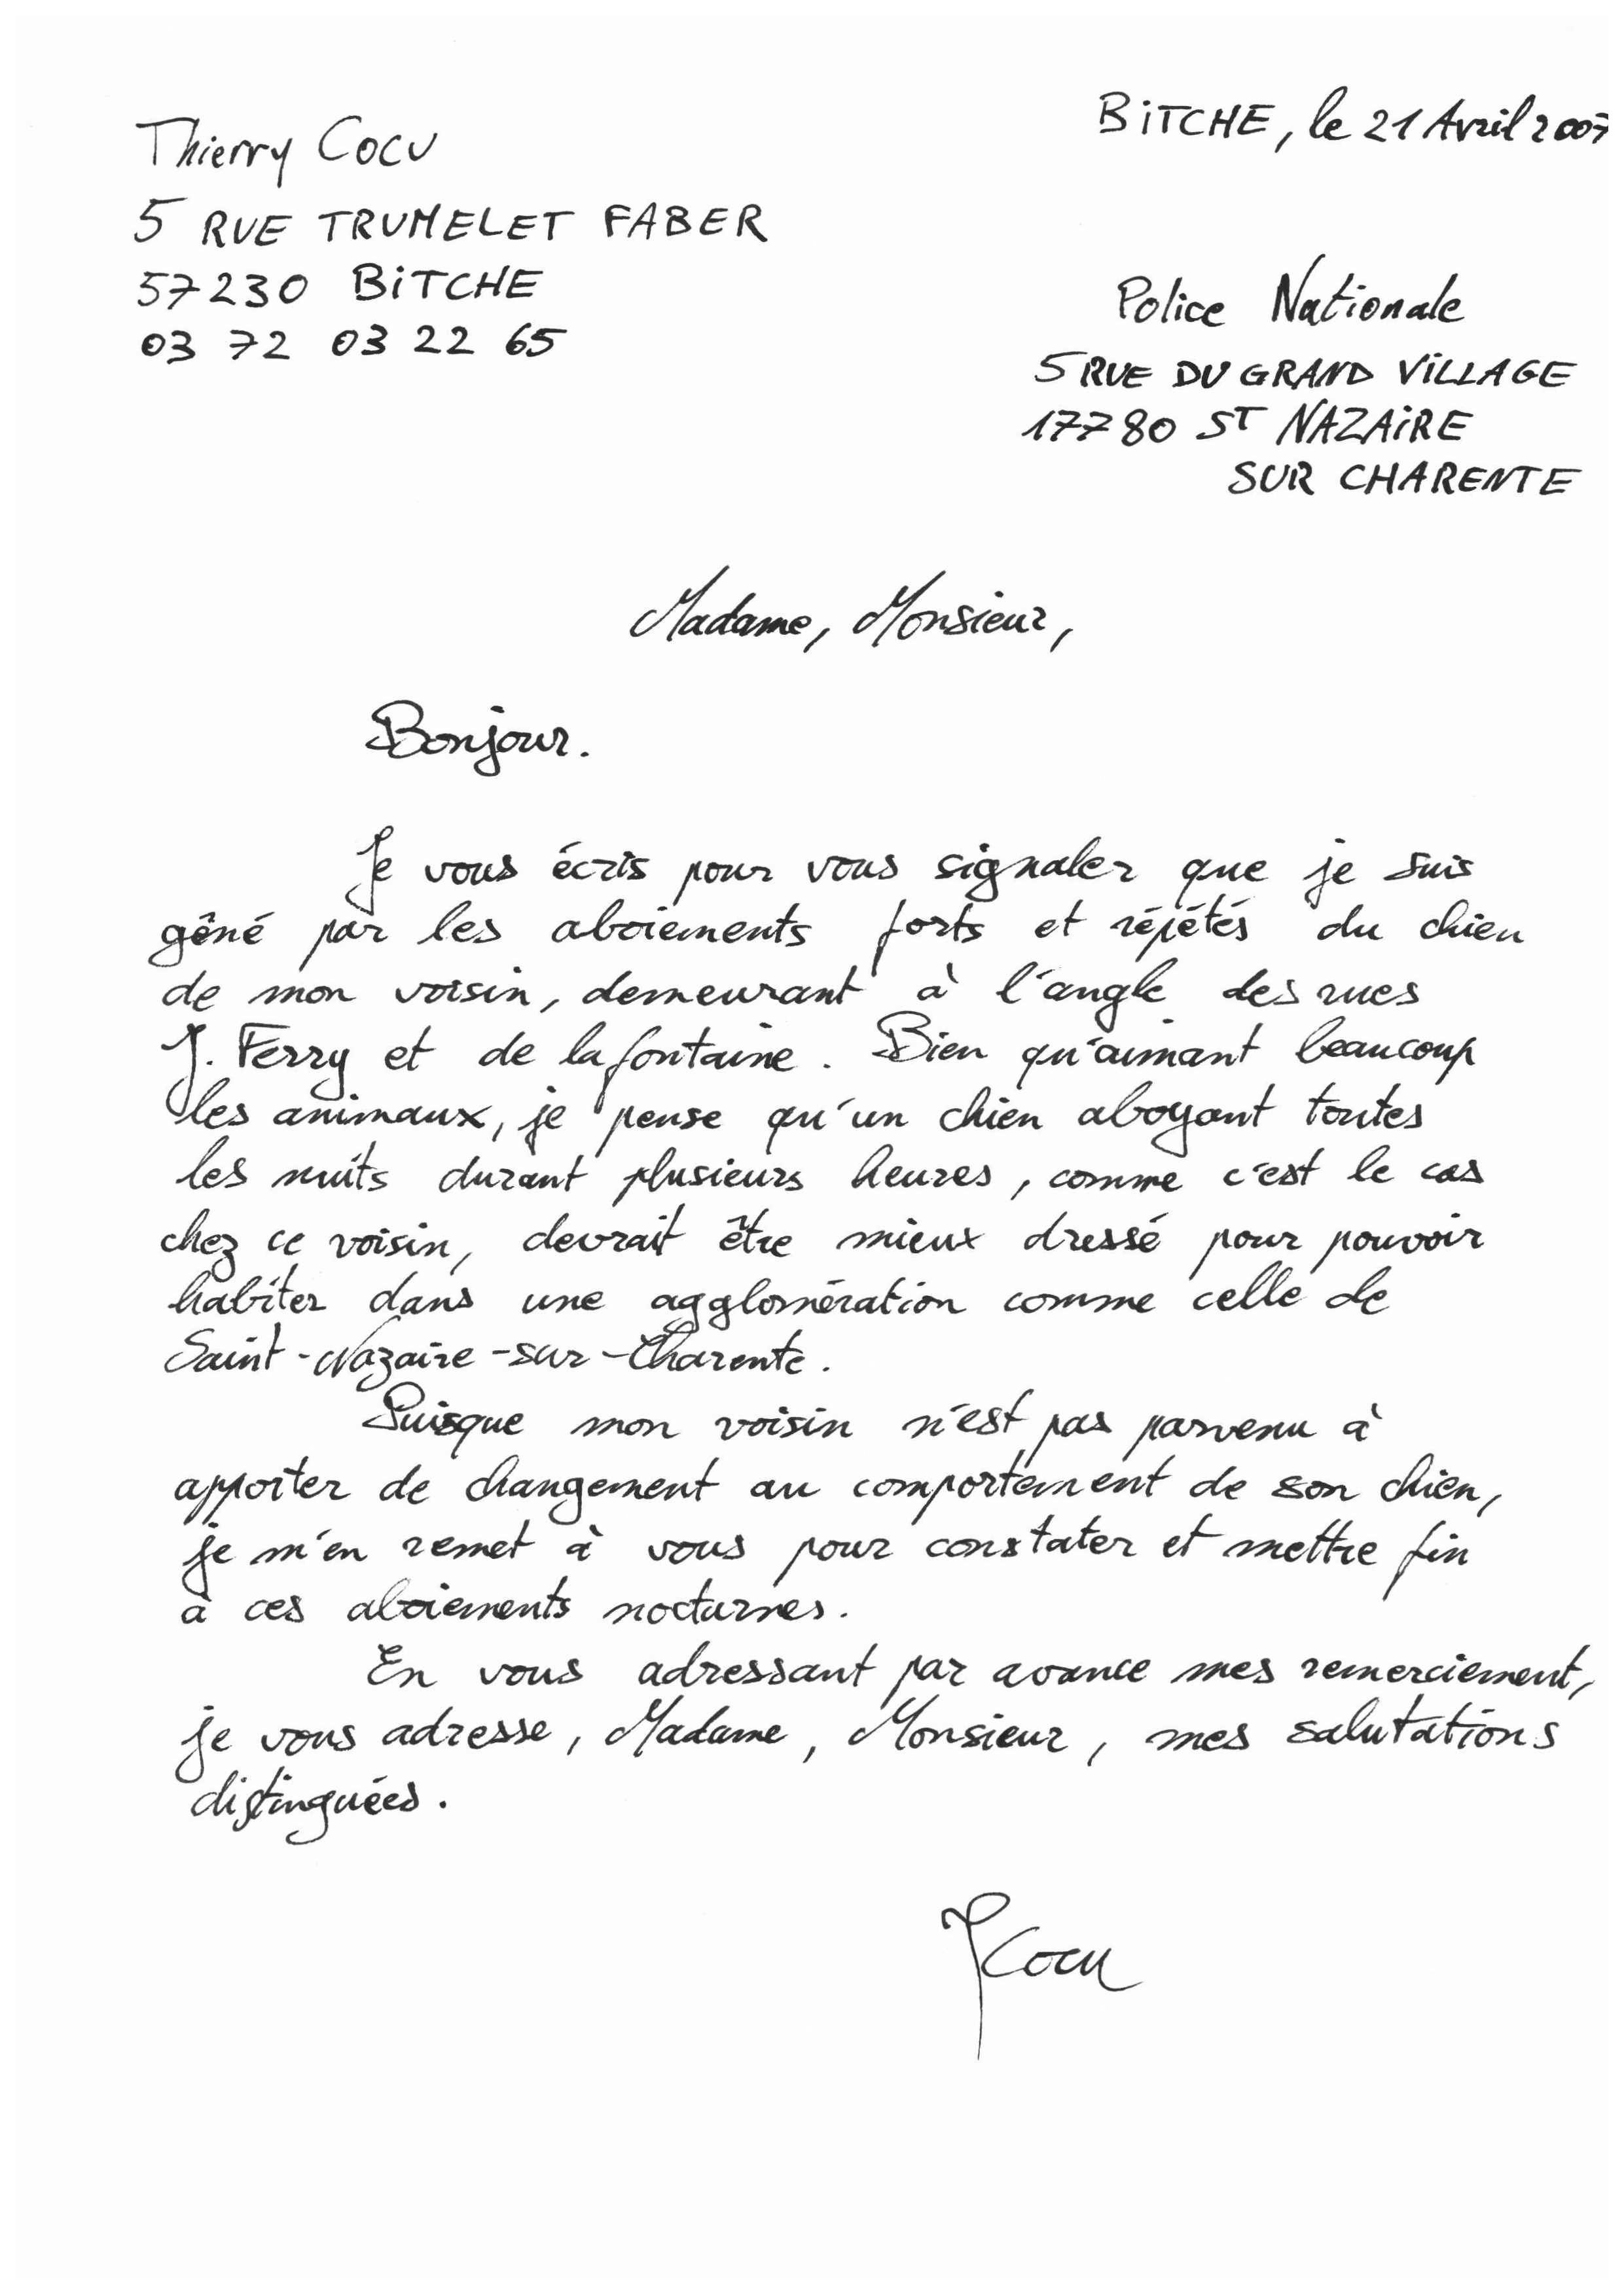 Thierry Cocu
5 RUE TRUMELET FABER
57230 BiTCHE
03 72 03 22 65
BiTCHE, le 21 Avril 2007
Police Nationale
5 RUE DU GRAND ViLLAGE
17780 ST NAZAiRE
SUR CHARENTE
Madame, Monsieur,
Bonjour.
Je vous écris pour vous signaler que je suis
gêné par les aboiements forts et répétés du chien
de mon voisin, demeurant à l'angle des rues
J. Ferry et de la fontaine. Bien qu'aimant beaucoup
les animaux, je pense qu'un chien aboyant toutes
les nuits durant plusieurs heures, comme c'est le cas
chez ce voisin, devrait être mieux dressé pour pouvoir
habiter dans une agglomération comme celle de
Saint-Nazaire-sur-Charente.
Puisque mon voisin n'est pas parvenu à
apporter de changement au comportement de son chien,
je m'en remet à vous pour constater et mettre fin
à ces aboiements nocturnes.
En vous adressant par avance mes remerciement,
je vous adresse, Madame, Monsieur, mes salutations
distinguées.
TCocu